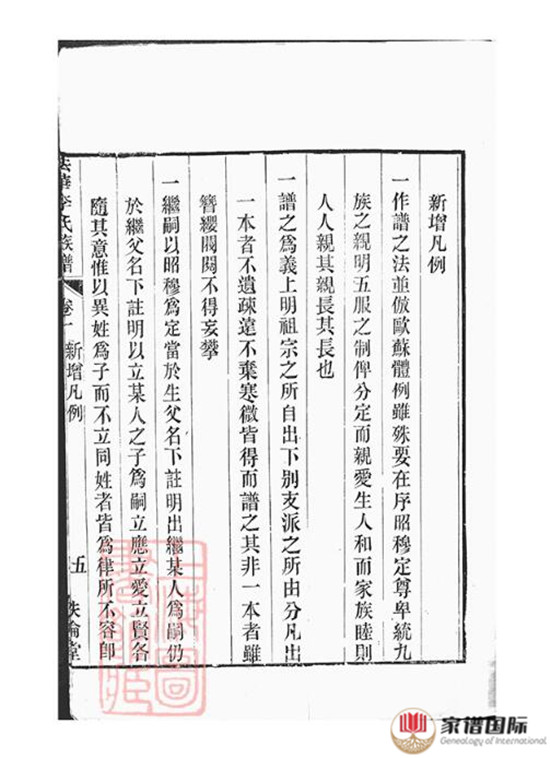 新增凡例
一作譜之法並倣歐蘇體例雖殊要在序昭穆定尊卑統九
族之親明五服之制俾分定而親愛生人和而家族睦則
人人親其親長其長也
一譜之爲義上明祖宗之所自出下别支派之所由分凡出
一本者不遺疎遠不棄寒微皆得而譜之其非一本者雖
簪纓閥閱不得妄攀
一繼嗣以昭穆爲定當於生父名下註明出繼某人爲嗣仍
於繼父名下註明以立某人之子爲嗣立應立愛立賢各
隨其意惟以異姓爲子而不立同姓者皆爲律所不容卽
法華李氏族譜
卷一
新增凡例
五
堂
家谱国际
Genealogy of International